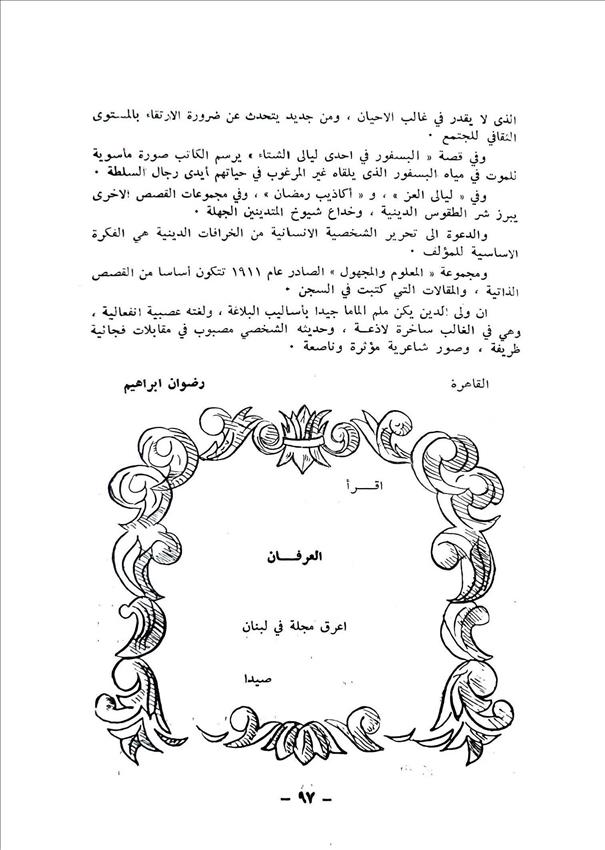 الذى لا يقدر في غالب الاحيان ، ومن جديد يتحدث عن ضرورة الارتقاء بالمستوى
الثقافي للجتمع ٠
وفي قصة « البسفور في احدى ليالى الشتاء » يرسم الكاتب صورة ماسوية
للموت في مياه البسفور الذى يلقاه غير المرغوب في حياتهم أيدى رجال السلطة ٠
وفي « ليالى العز » ، و « أكاذيب رمضان » ، وفي مجموعات القصص الاخرى
يبرز شر الطقوس الدينية ، وخداع شيوخ المتدينين الجهلة ٠
والدعوة الى تحرير الشخصية الانسانية من الخرافات الدينية هي الفكرة
الاساسية للمؤلف ٠
ومجموعة « المعلوم والمجهول » الصادر عام ١٩١١ تتكون أساسا من القصص
الذاتية ، والمقالات التي كتبت في السجن ٠
ان ولى الدين يكن ملم الماما جيدا بأساليب البلاغة ، ولغته عصبية انفعالية ،
وهي في الغالب ساخرة لاذعـة ، وحديثه الشخصي مصبوب في مقابلات فجائية
ظريفة ، وصور شاعرية مؤثرة وناصعة ٠
القاهرة رضوان ابراهيم
اقـــرأ
العرفـــان
اعرق مجلة في لبنان
صيدا
- ٩٧ -